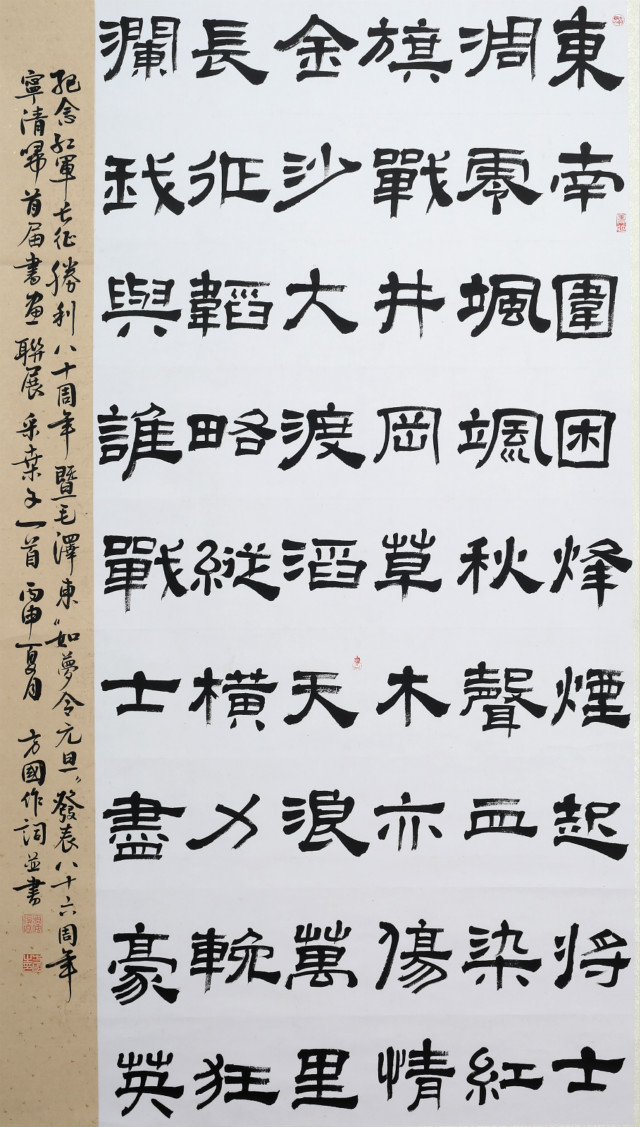 東南圍困烽煙起將士
凋零颯颯秋聲血染紅
旗戰井岡草木亦傷情
金沙大渡滔天浪萬里
長征韜略縱橫力輓狂
瀾我與誰戰士盡豪英
紀念紅軍长征勝利八十周年暨毛澤東“如夢令元旦”發表八十六周年
寧清歸首届書画聯展 采桑子一首 丙申夏月 方國作詞並書